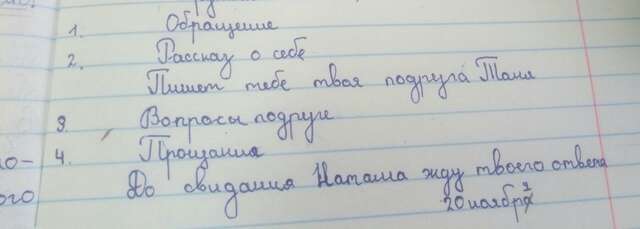 1. Обращение
2. Рассказ о себе
Пишет тебе твоя подруга Таня
3. Вопросы подруге
4. Прощания
До свидания Наташа жду твоего ответа
20 ноября